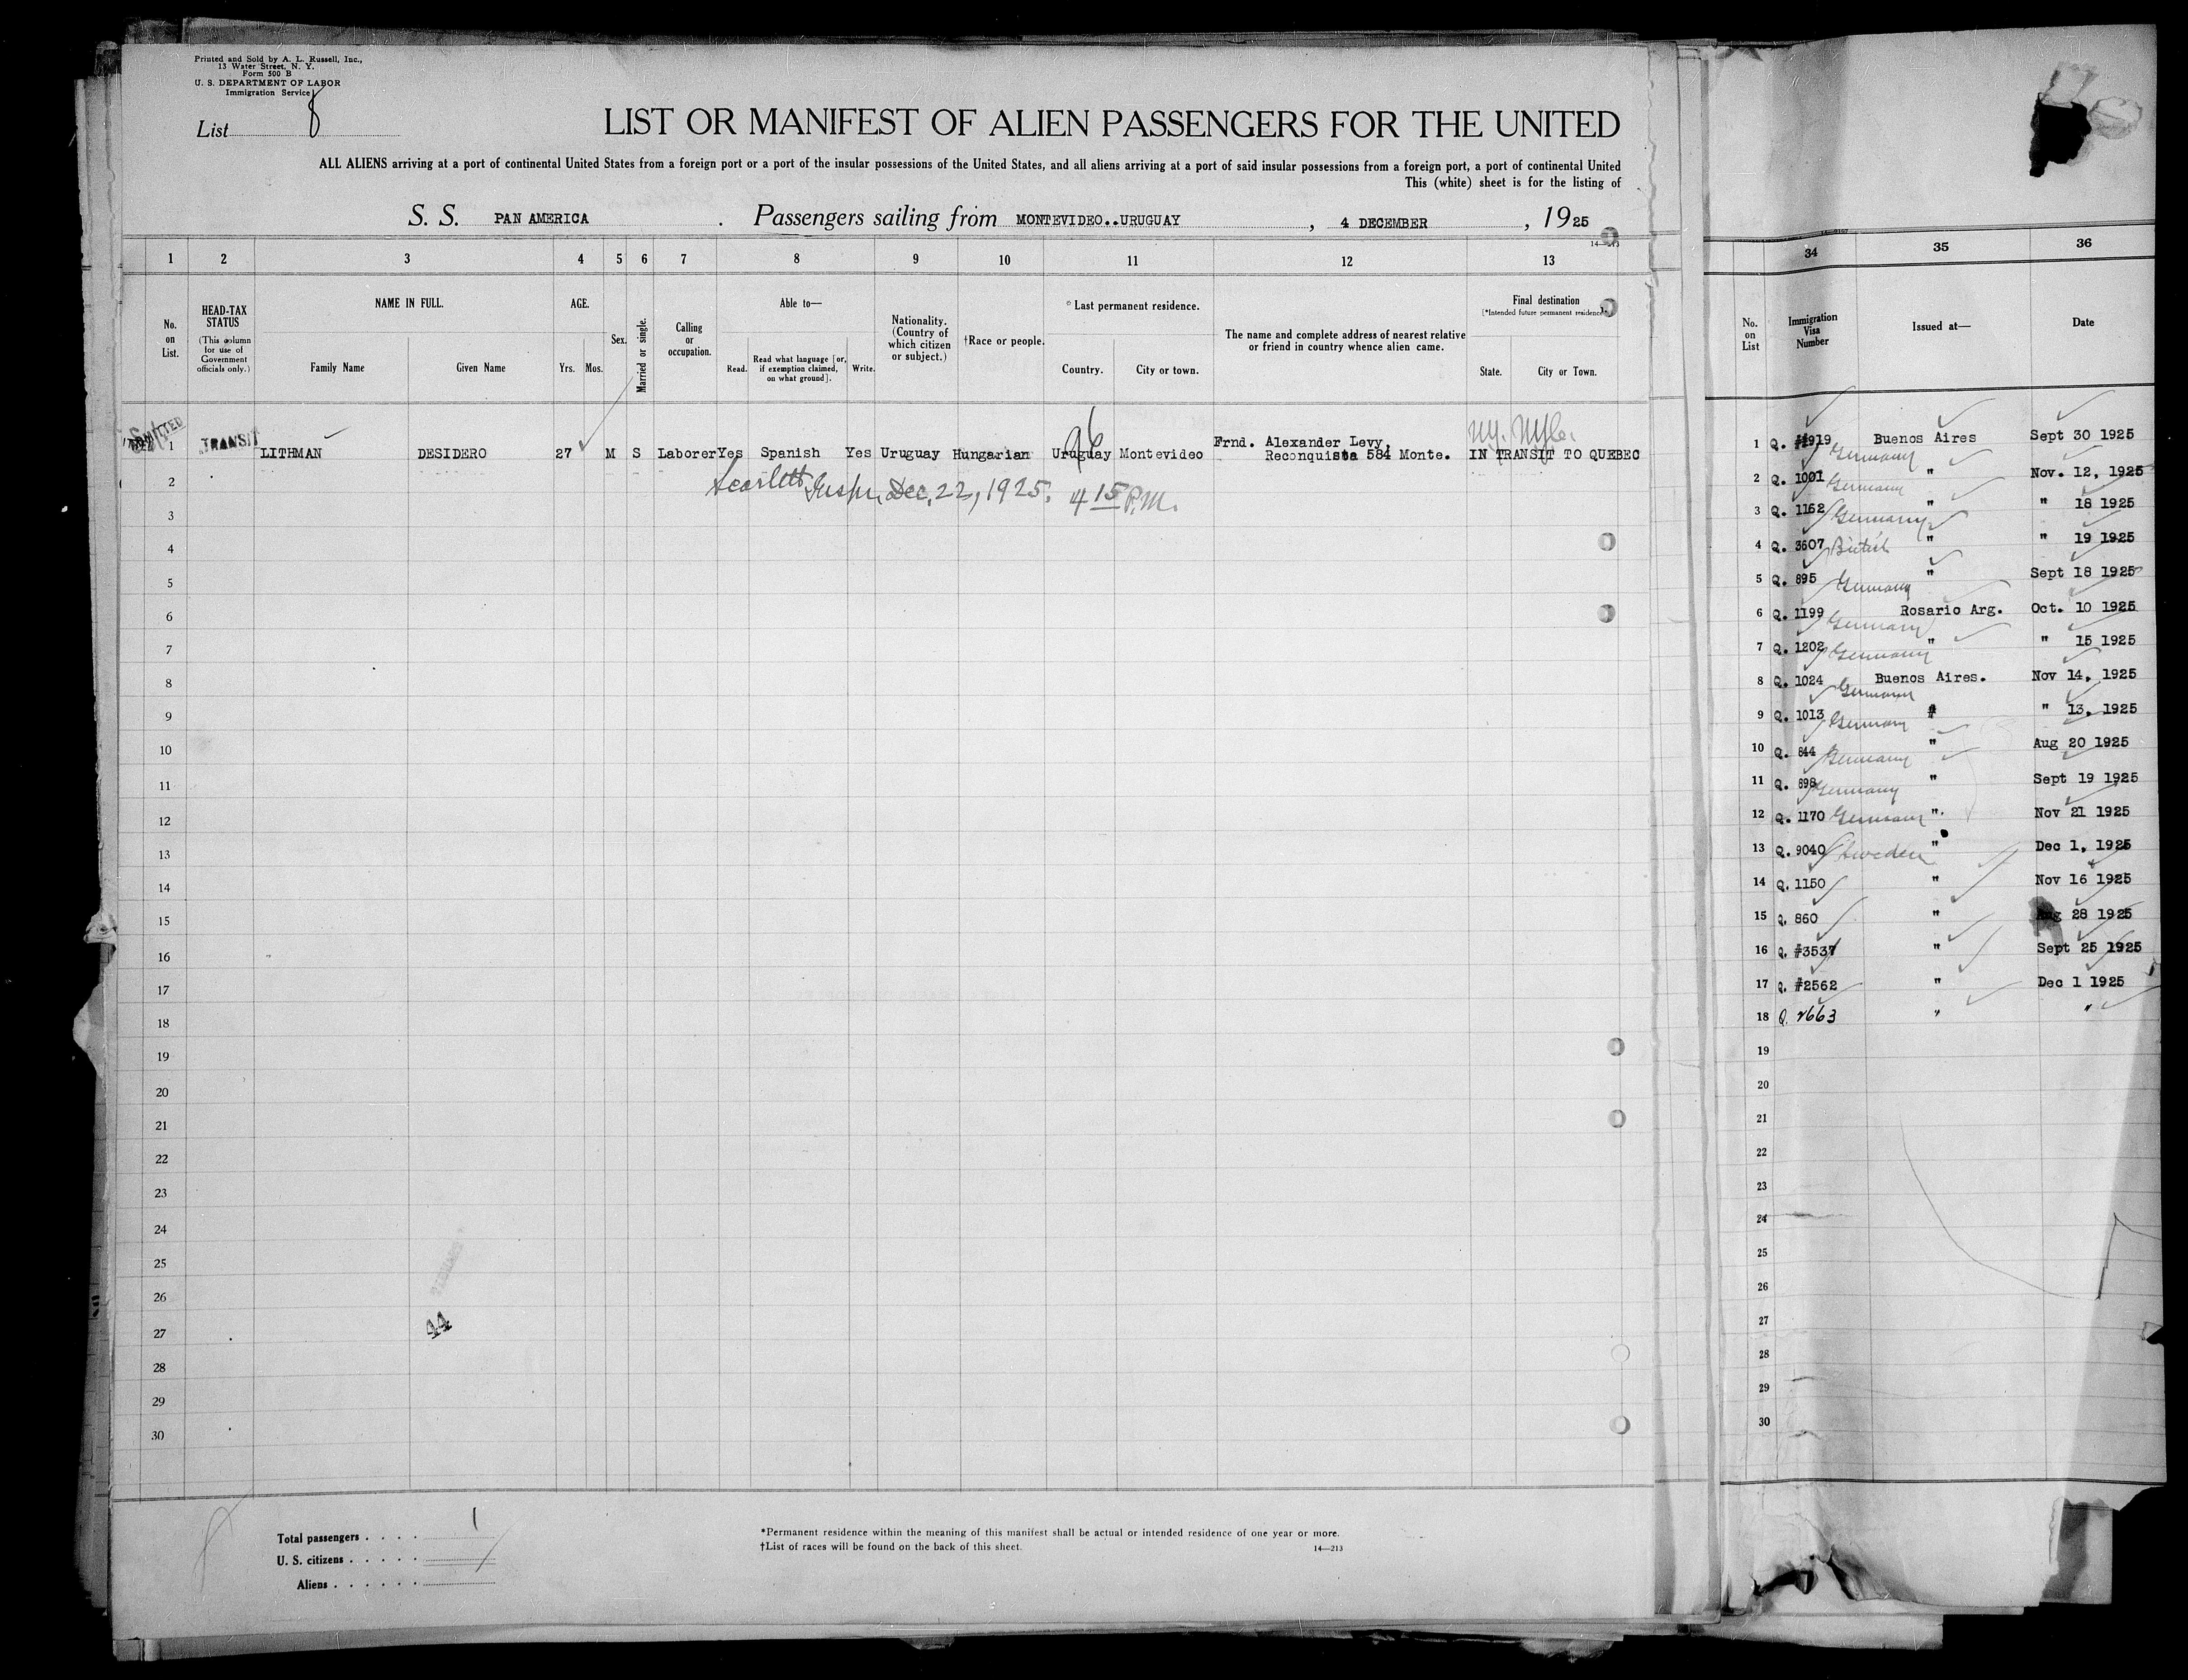 Printed and Sold by A. L. Russell, Inc.,
13 Water Street, N. Y.
Form 500 B
U. S. DEPARTMENT OF LABOR
Immigration Service
List 8
LIST OR MANIFEST OF ALIEN PASSENGERS FOR THE UNITED
ALL ALIENS arriving at a port of continental United States from a foreign port or a port of the insular possessions of the United States, and all aliens arriving at a port of said insular possessions from a foreign port, a port of continental United
This (white) sheet is for the listing of
S. S. PAN AMERICA . Passengers sailing from MONTEVIDEO..URUGUAY , 4 DECEMBER , 1925
14—213
1 2 3 4 5 6 7 8 9 10 11 12 13
No. on List.
HEAD-TAX STATUS
(This column for use of Government officials only.)
NAME IN FULL.
Family Name Given Name
AGE.
Yrs. Mos.
Sex.
Married or single.
Calling or occupation.
Able to—
Read. Read what language [or, if exemption claimed, on what ground]. Write.
Nationality. (Country of which citizen or subject.)
†Race or people.
*Last permanent residence.
Country. City or town.
The name and complete address of nearest relative or friend in country whence alien came.
Final destination
[*Intended future permanent residence]
State. City or Town.
ADMITTED
1 TRANSIT LITHMAN DESIDERO 27 M S Laborer Yes Spanish Yes Uruguay Hungarian Uruguay Montevideo Frnd. Alexander Levy, Reconquista 584 Monte. IN TRANSIT TO QUEBEC
2 Scarlett Inspr. Dec, 22, 1925. 4 15 P.M.
3
4
5
6
7
8
9
10
11
12
13
14
15
16
17
18
19
20
21
22
23
24
25
26
27 44
28
29
30
Total passengers . . . . 1
U. S. citizens . . . . .
Aliens . . . . . .
*Permanent residence within the meaning of this manifest shall be actual or intended residence of one year or more.
†List of races will be found on the back of this sheet. 14—213
34 35 36
No. on List
Immigration Visa Number
Issued at—
Date
1 Q. #919 Buenos Aires Sept 30 1925
Germany
2 Q. 1001 " Nov. 12, 1925
Germany
3 Q. 1162 " " 18 1925
Germany
4 Q. 3607 British " " 19 1925
5 Q. 895 " Sept 18 1925
Germany
6 Q. 1199 Rosario Arg. Oct. 10 1925
Germany
7 Q. 1202 " " 15 1925
Germany
8 Q. 1024 Buenos Aires. Nov 14, 1925
Germany
9 Q. 1013 Germany " " 13, 1925
10 Q. 844 Germany " Aug 20 1925
11 Q. 898 Germany " Sept 19 1925
12 Q. 1170 Germany " Nov 21 1925
13 Q. 9040 Sweden " Dec 1, 1925
14 Q. 1150 " Nov 16 1925
15 Q. 860 " Aug 28 1925
16 Q. #3537 " Sept 25 1925
17 Q. #2562 " Dec 1 1925
18 Q. 2663 " "
19
20
21
22
23
24
25
26
27
28
29
30